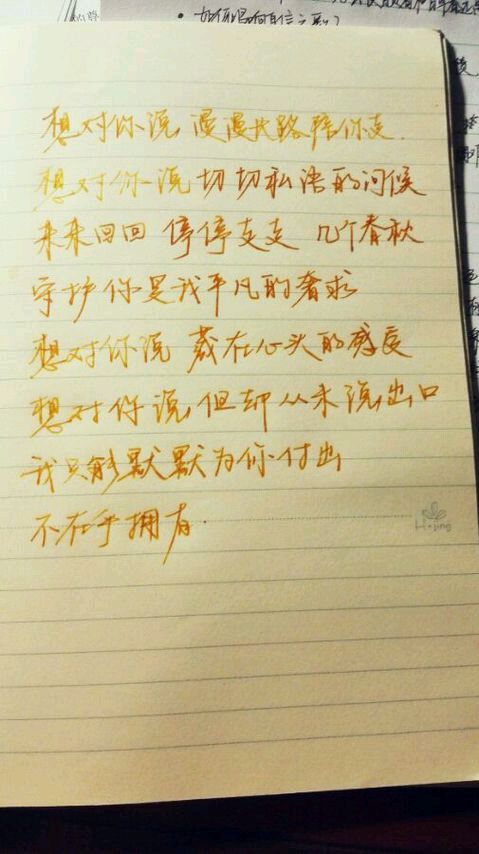 想对你说 漫漫长路陪你走.
想对你说 切切私语的问候
来来回回 停停走走 几个春秋
守护你是我平凡的奢求
想对你说 藏在心头的感受
想对你说,但却从未说出口
我只能默默为你付出
不在乎拥有.